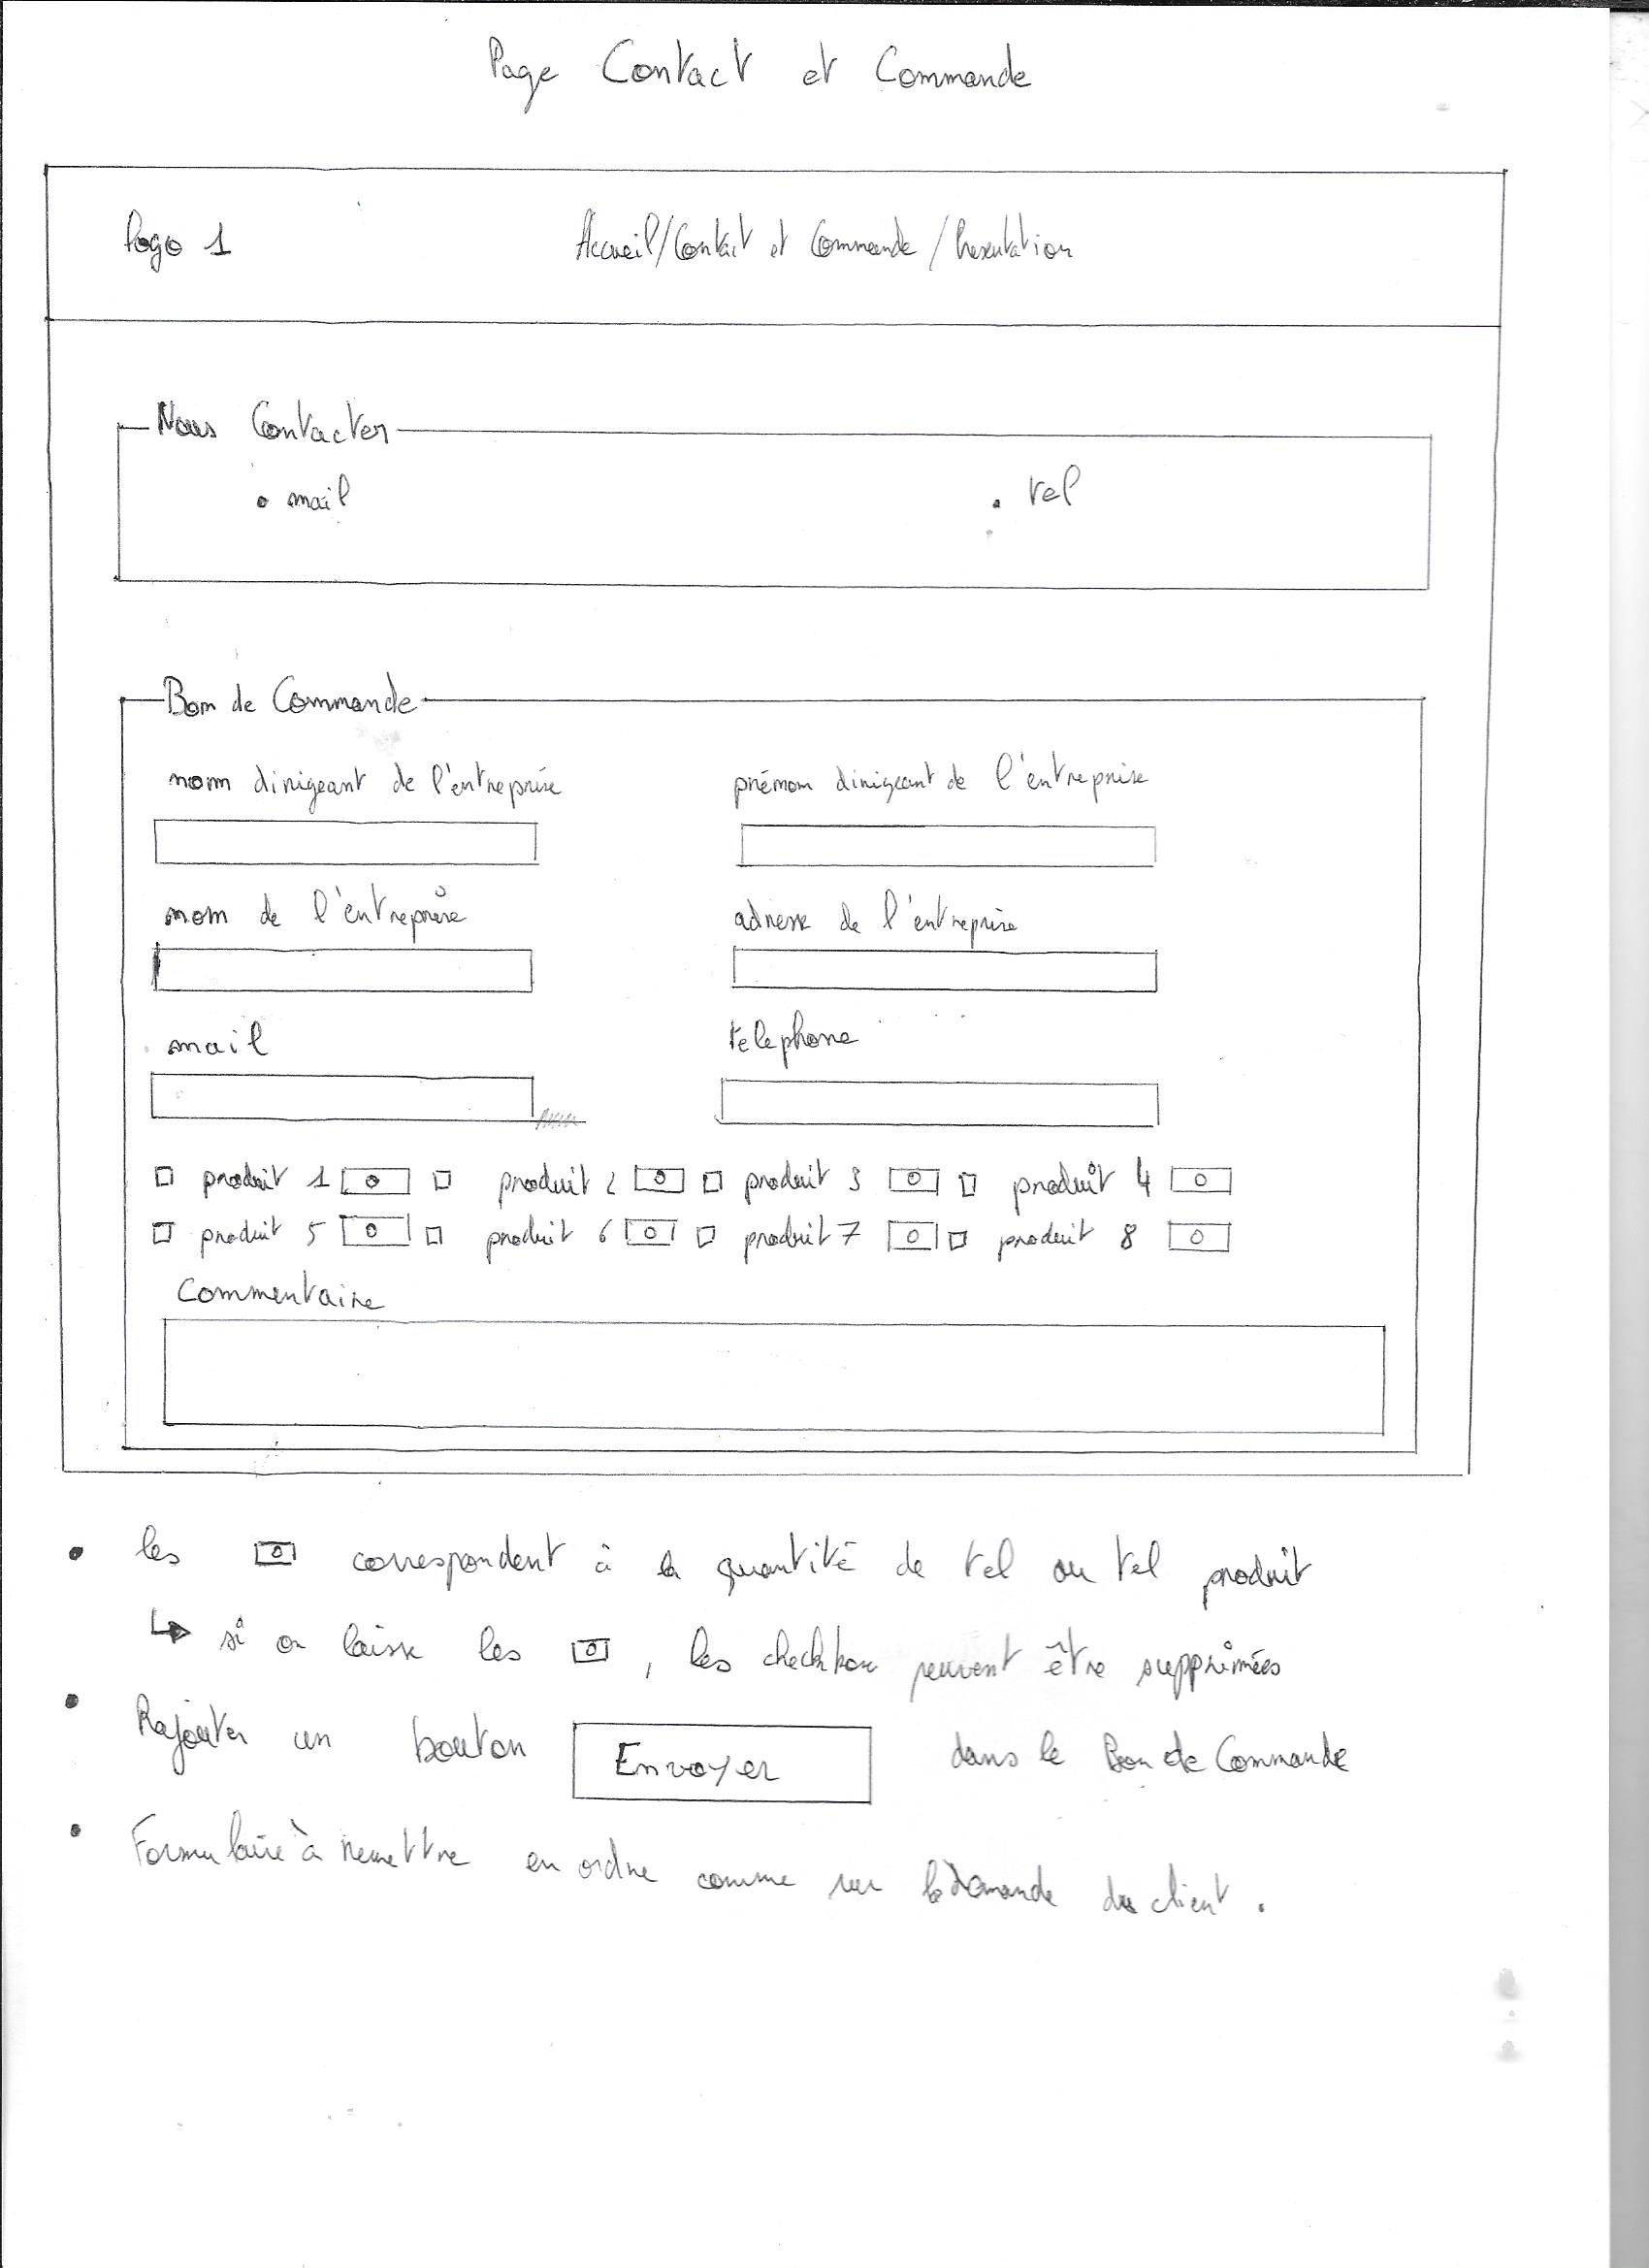 Page Contact et Commande
Logo 1
Accueil/Contact et Commande/Presentation
Nous Contacter
• mail
• tel
Bon de Commande
nom dirigeant de l'entreprise
prénom dirigeant de l'entreprise
nom de l'entreprise
adresse de l'entreprise
mail
telephone
produit 1 0 produit 2 0 produit 3 0 produit 4 0
produit 5 0 produit 6 0 produit 7 0 produit 8 0
Commentaire
• les 0 correspondent à la quantité de tel ou tel produit
↳ si on laisse les 0, les checkbox peuvent être supprimées
• Rajouter un bouton Envoyer dans le Bon de Commande
• Formulaire à remettre en ordre comme sur la demande du client.